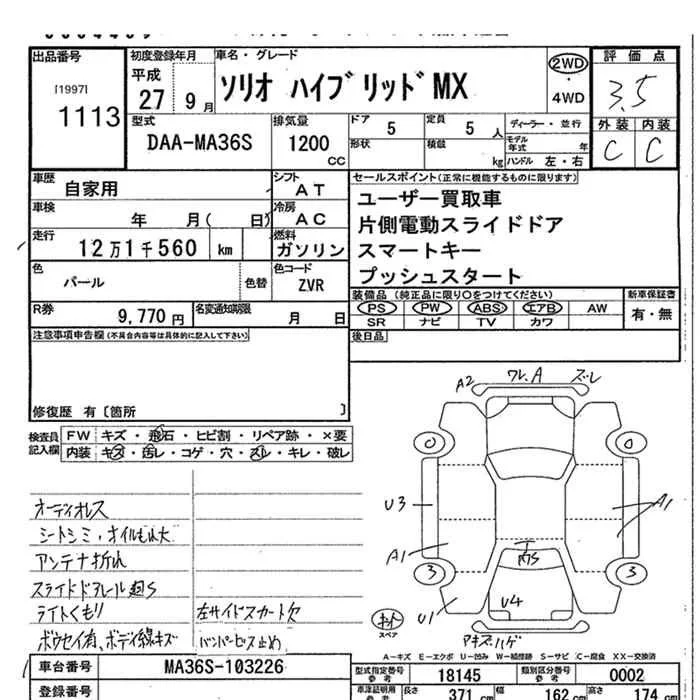 出品番号 初度登録年月 車名・グレード 評価点
[1997] 平成 ソリオ ハイブリッドMX 2WD 3.5
1113 27 9月 ・ 4WD
型式 排気量 ドア 5 定員 5 人 ディーラー・並行 外装 内装
DAA-MA36S 1200 CC 形状 積載 kg モデル年式 年 C C
ハンドル 左・右
車歴 自家用 シフト AT セールスポイント(正常に機能するものに限ります)
車検 年 月( 日) 冷房 AC ユーザー買取車
走行 12万1千560 km 燃料 ガソリン 片側電動スライドドア
スマートキー
色 パール 色替 色コード ZVR プッシュスタート
R券 9,770円 名変通知期限 月 日 装備品(純正品に限り○をつけてください) 新車保証書
PS PW ABS エアB AW 有・無
SR ナビ TV カワ
注意事項申告欄(不具合内容等は具体的に記入して下さい) 後日品
修復歴 有〔箇所 〕
検査員記入欄 FW キズ・飛石・ヒビ割・リペア跡・×要
内装 キズ・汚レ・コゲ・穴・スレ・キレ・破レ
A2 ワレ.A ズレ
U3 A1
A1
3 3
U1 U4
オーディオレス
シートシミ・オイルもれ大
アンテナ折れ
ライトくもり 左サイドスカート欠
バンパービス止め
スペア アキズハゲ
A−キズ E−エクボ U−凹み W−補修跡 S−サビ C−腐食 XX−交換済
車台番号 MA36S-103226 型式指定番号 参考 18145 類別区分番号 参考 0002
登録番号 車検証明用 参考 長さ 371 cm 幅 162 cm 高さ 174 cm